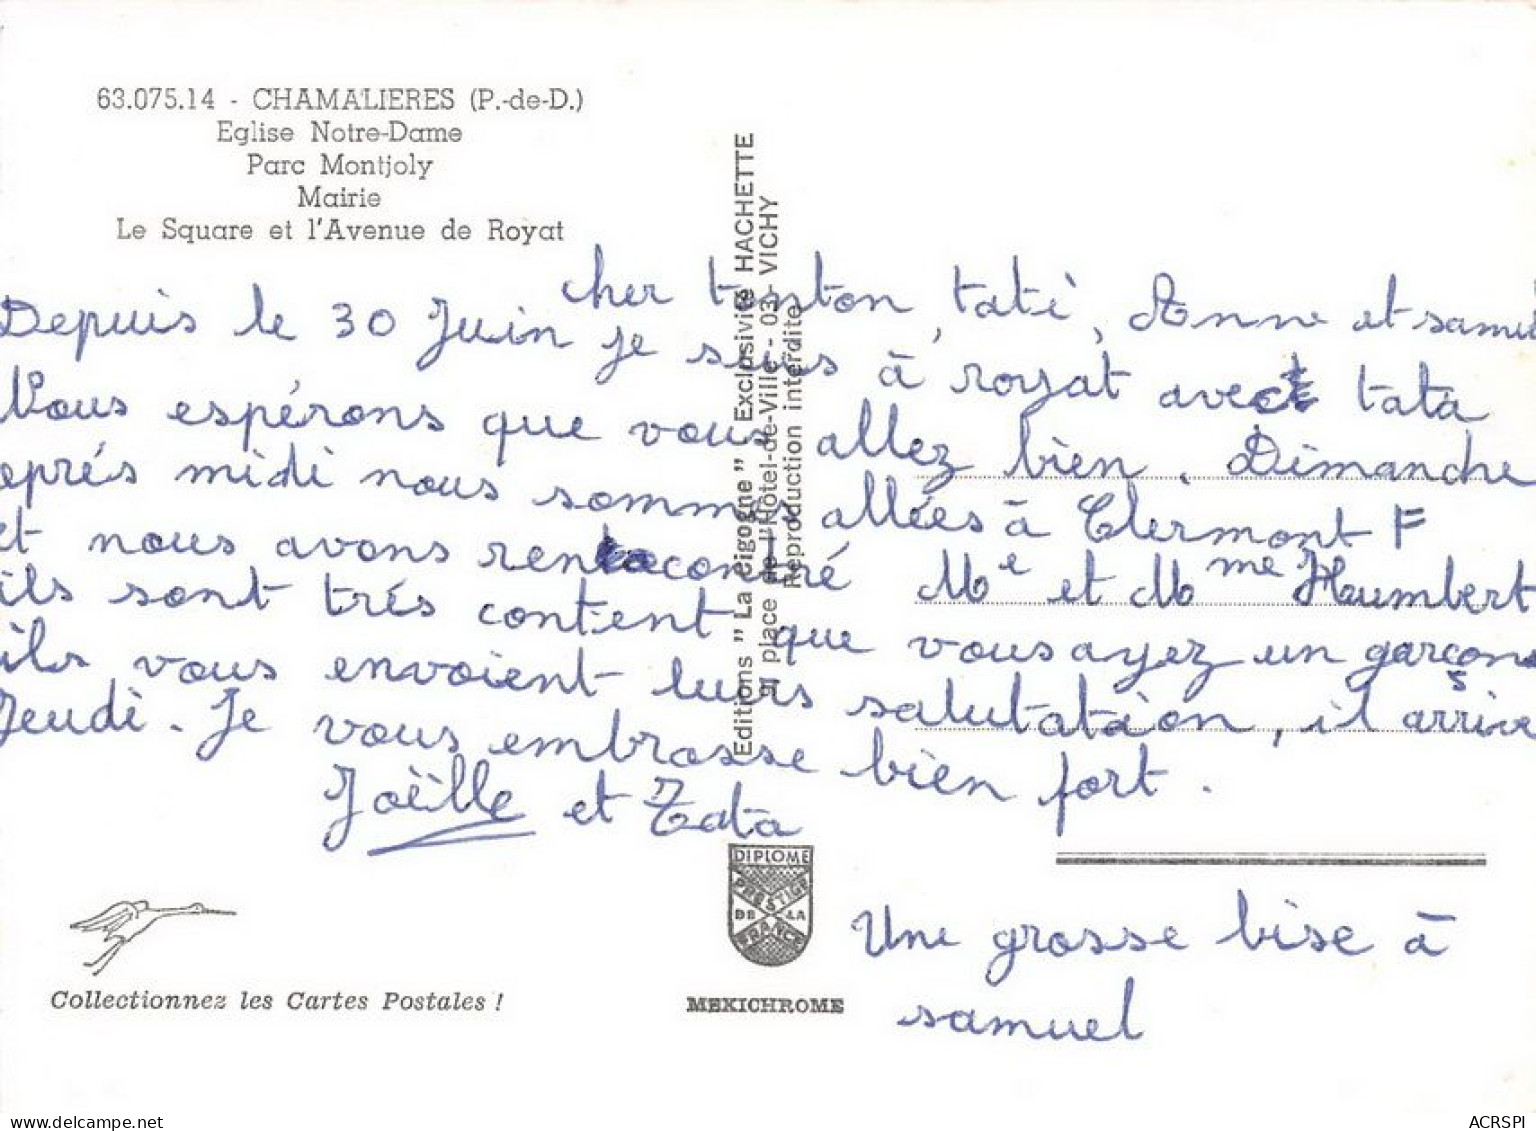 63.075.14 - CHAMALIERES (P.-de-D.)
Eglise Notre-Dame
Parc Montjoly
Mairie
Le Square et l'Avenue de Royat
Editions "La Cigogne" Exclusivité HACHETTE
9, place de l'Hôtel-de-Ville - 03 - VICHY
Reproduction interdite
cher tonton, taté, Anne et samuel
Depuis le 30 Juin je suis à royat avec tata
Nous espérons que vous allez bien. Dimanche
après midi nous sommes allées à Clermont F
et nous avons rencontré Me et Mme Humbert
ils sont trés content que vous ayez un garçons
ils vous envoient leurs salutataion, il arrive
Jeudi. Je vous embrasse bien fort.
Joëlle et Tata
DIPLOME
PRESTIGE
DE LA
FRANCE
Une grosse bise à
samuel
Collectionnez les Cartes Postales !
MEXICHROME
www.delcampe.net
ACRSPI